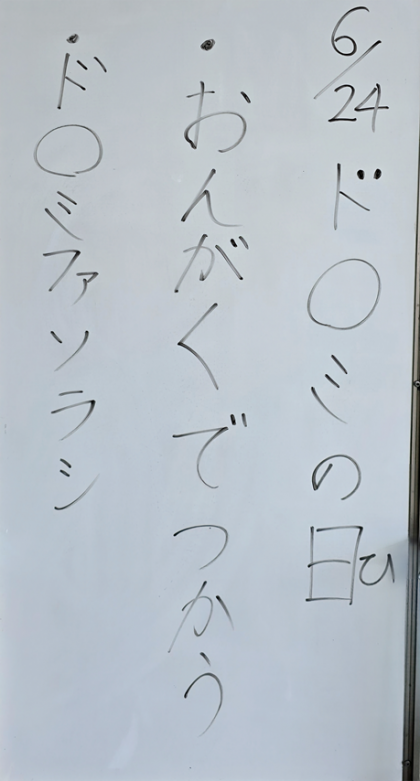 6/24 ド〇ミの日
ひ
・おんがくでつかう
・ド〇ミファソラシ